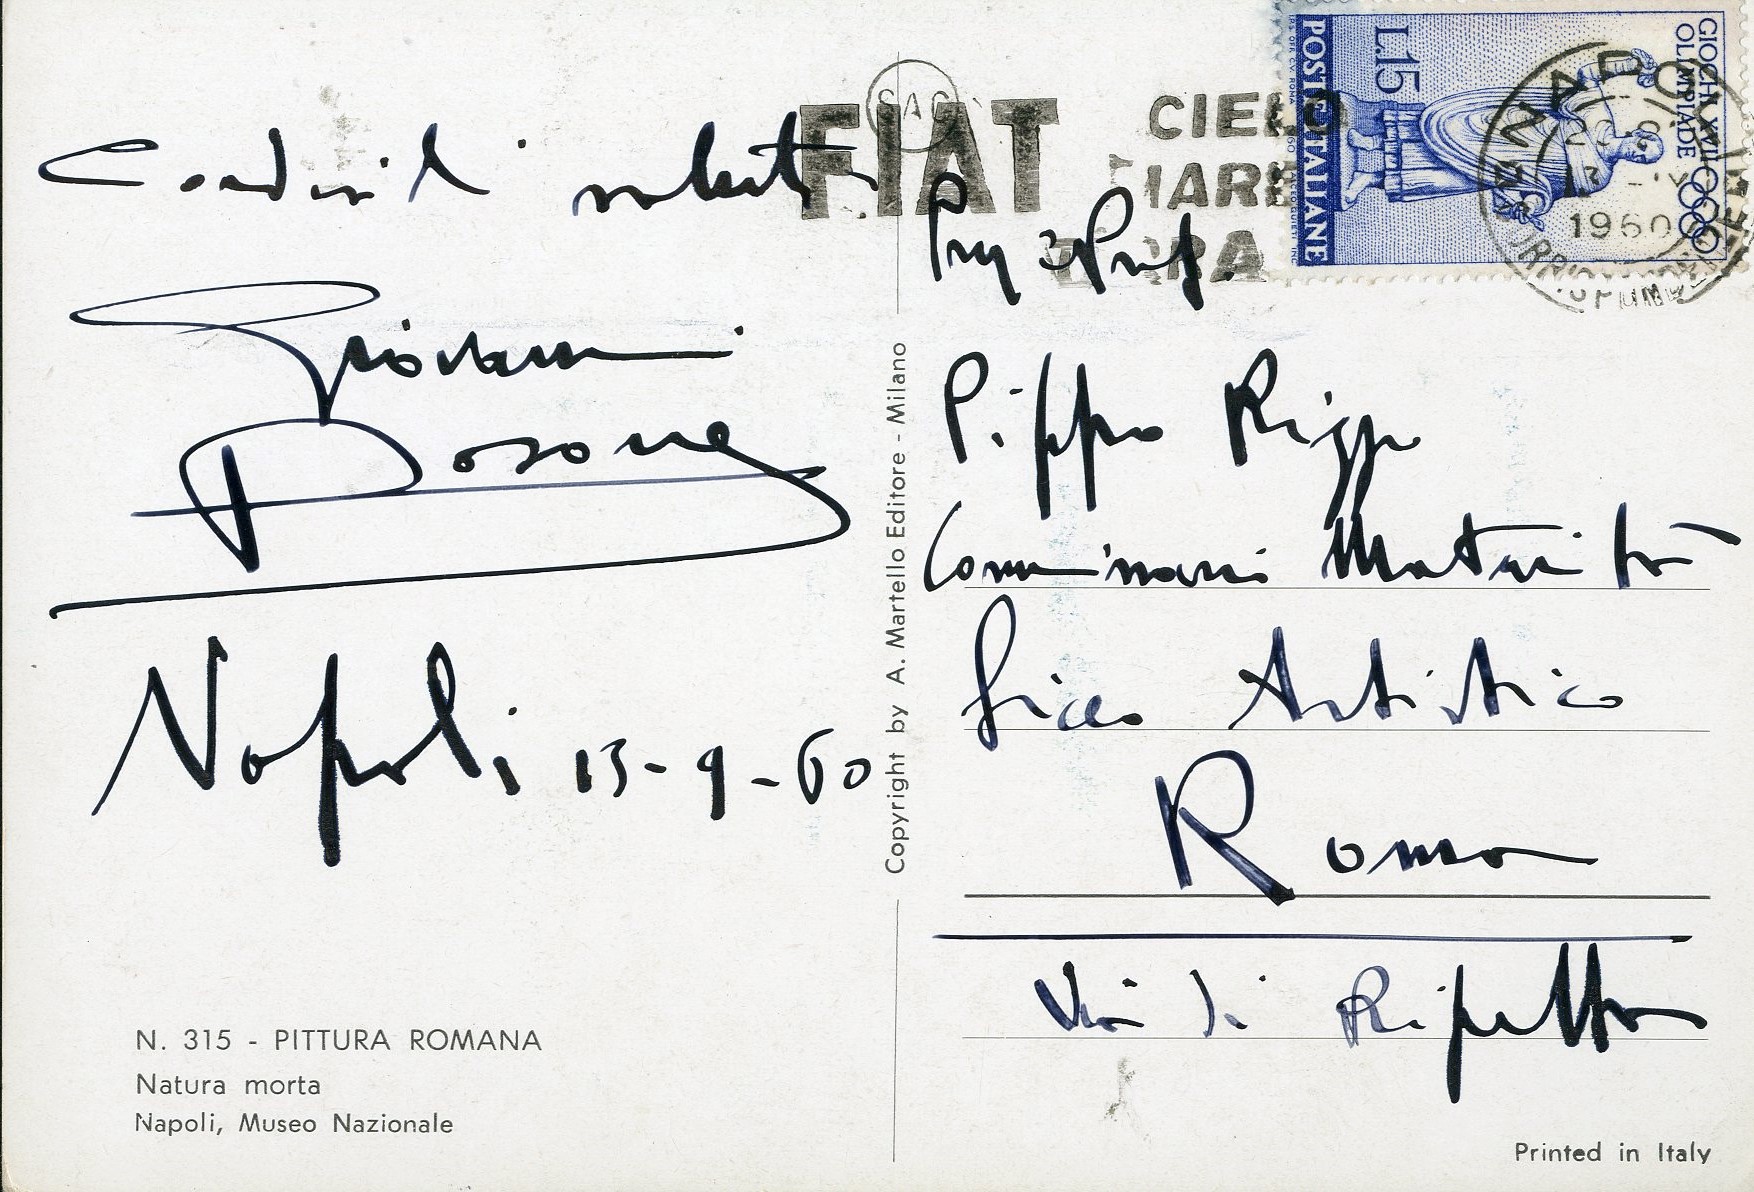 Cordiali saluti
Giovanni
Napoli 13-9-60
N. 315 - PITTURA ROMANA
Natura morta
Napoli, Museo Nazionale
Copyright by A. Martello Editore - Milano
SAC
FIAT
CIELO
MARE
TERRA
GIOCHI XVII
OLIMPIADE
L.15
POSTE ITALIANE
NAPOLI
1960
Prof.
Pippo Rizzo
Commissario Maturità
Liceo Artistico
Roma
Via di Ripetta
Printed in Italy